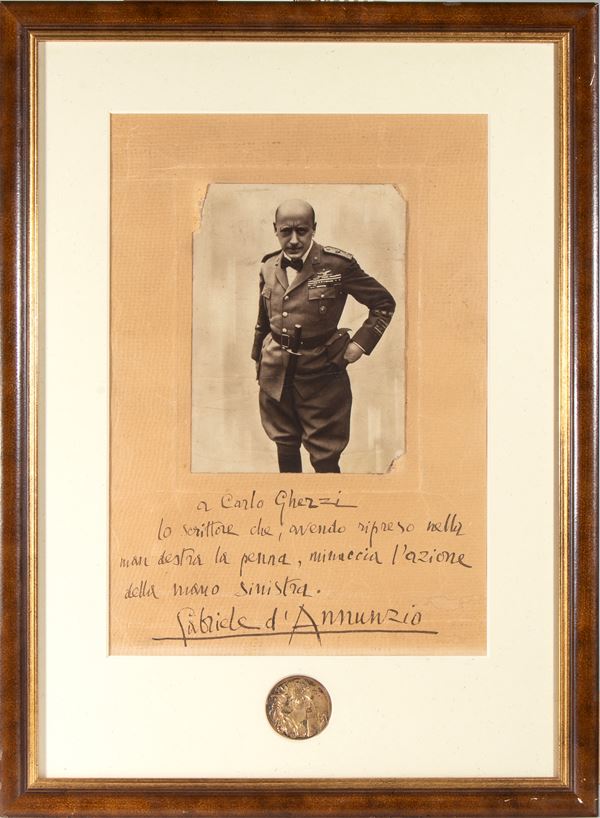 a Carlo Gherzi
lo scrittore che, avendo ripreso nella
man destra la penna, minaccia l'azione
della mano sinistra.
Gabriele d'Annunzio